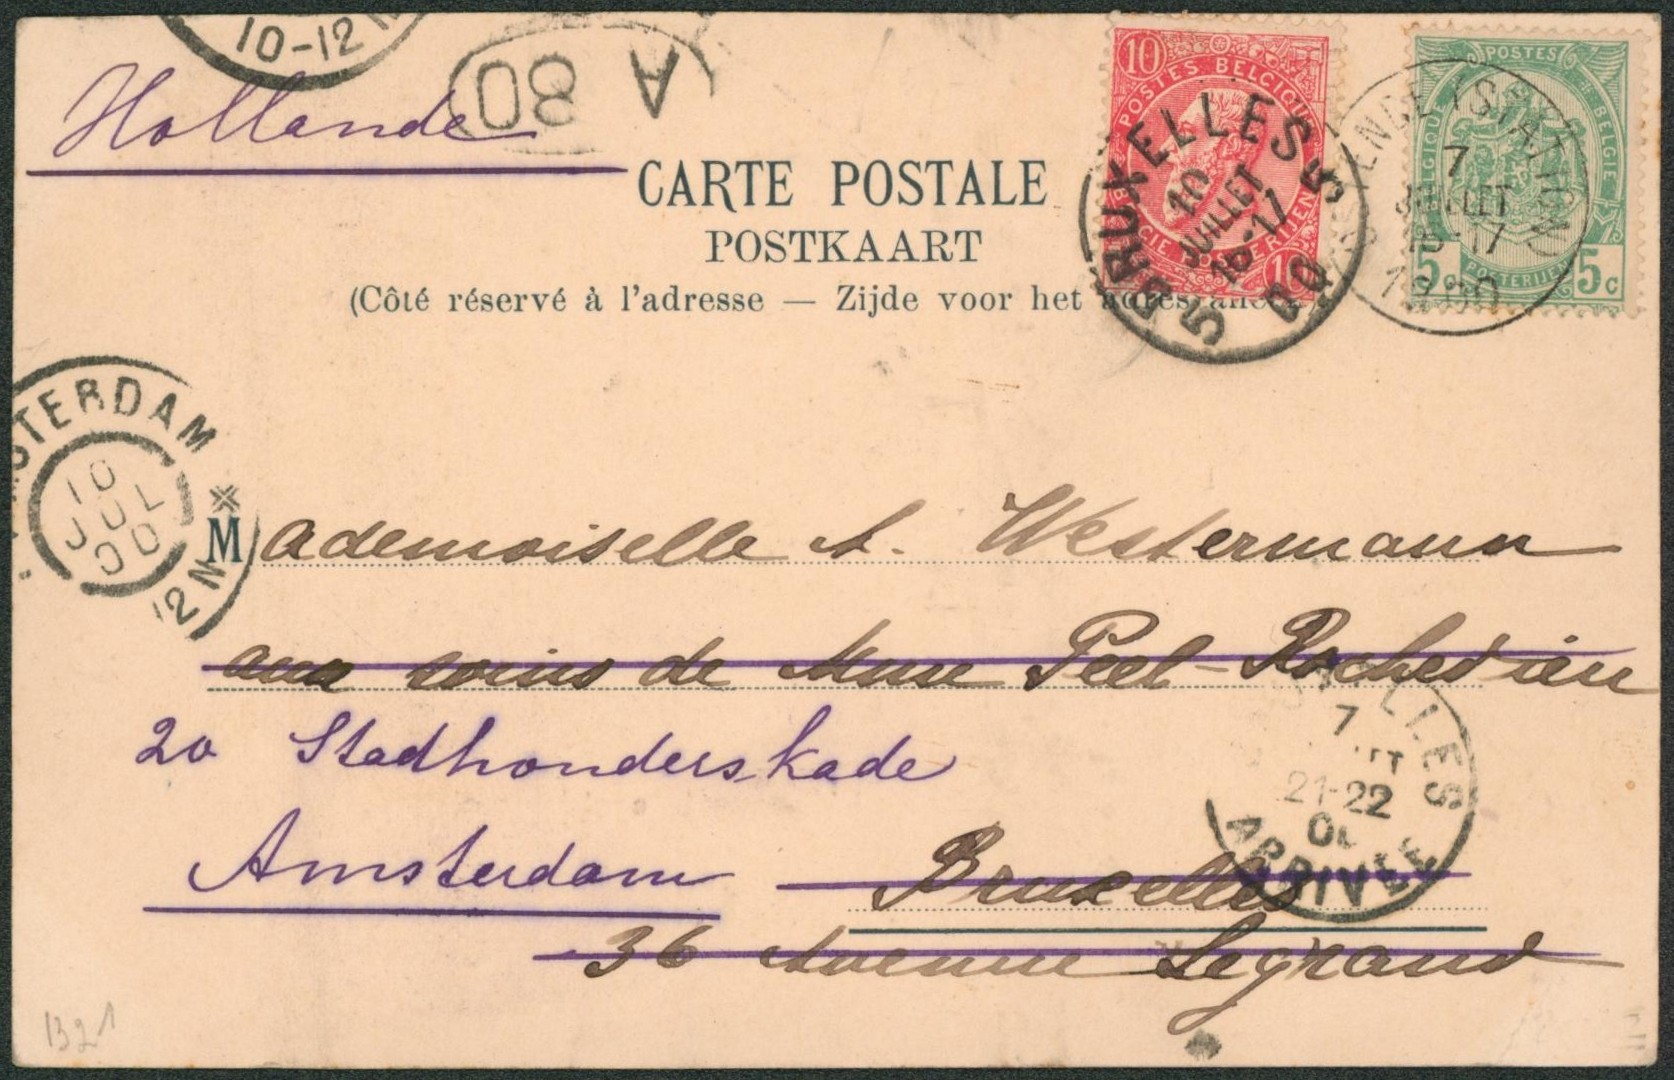 10-12 N
Hollande
A 80
CARTE POSTALE
POSTKAART
(Côté réservé à l'adresse — Zijde voor het
10
POSTES BELGIQUE
BRUXELLES 5
10
JUILLET
16-17
00
5
POSTES
BELGIQUE
BELGIE
5c
POSTERIJEN
5c
(STATION)
7
JUILLET
16-17
1900
AMSTERDAM
10
JUL
00
12 N
Mademoiselle A. Westermann
aux soins de Mme Peel-Rochedieu
20 Stadhonderskade
Amsterdam
Bruxelles
36 Avenue Legrand
7
21-22
ARRIVEE
1321